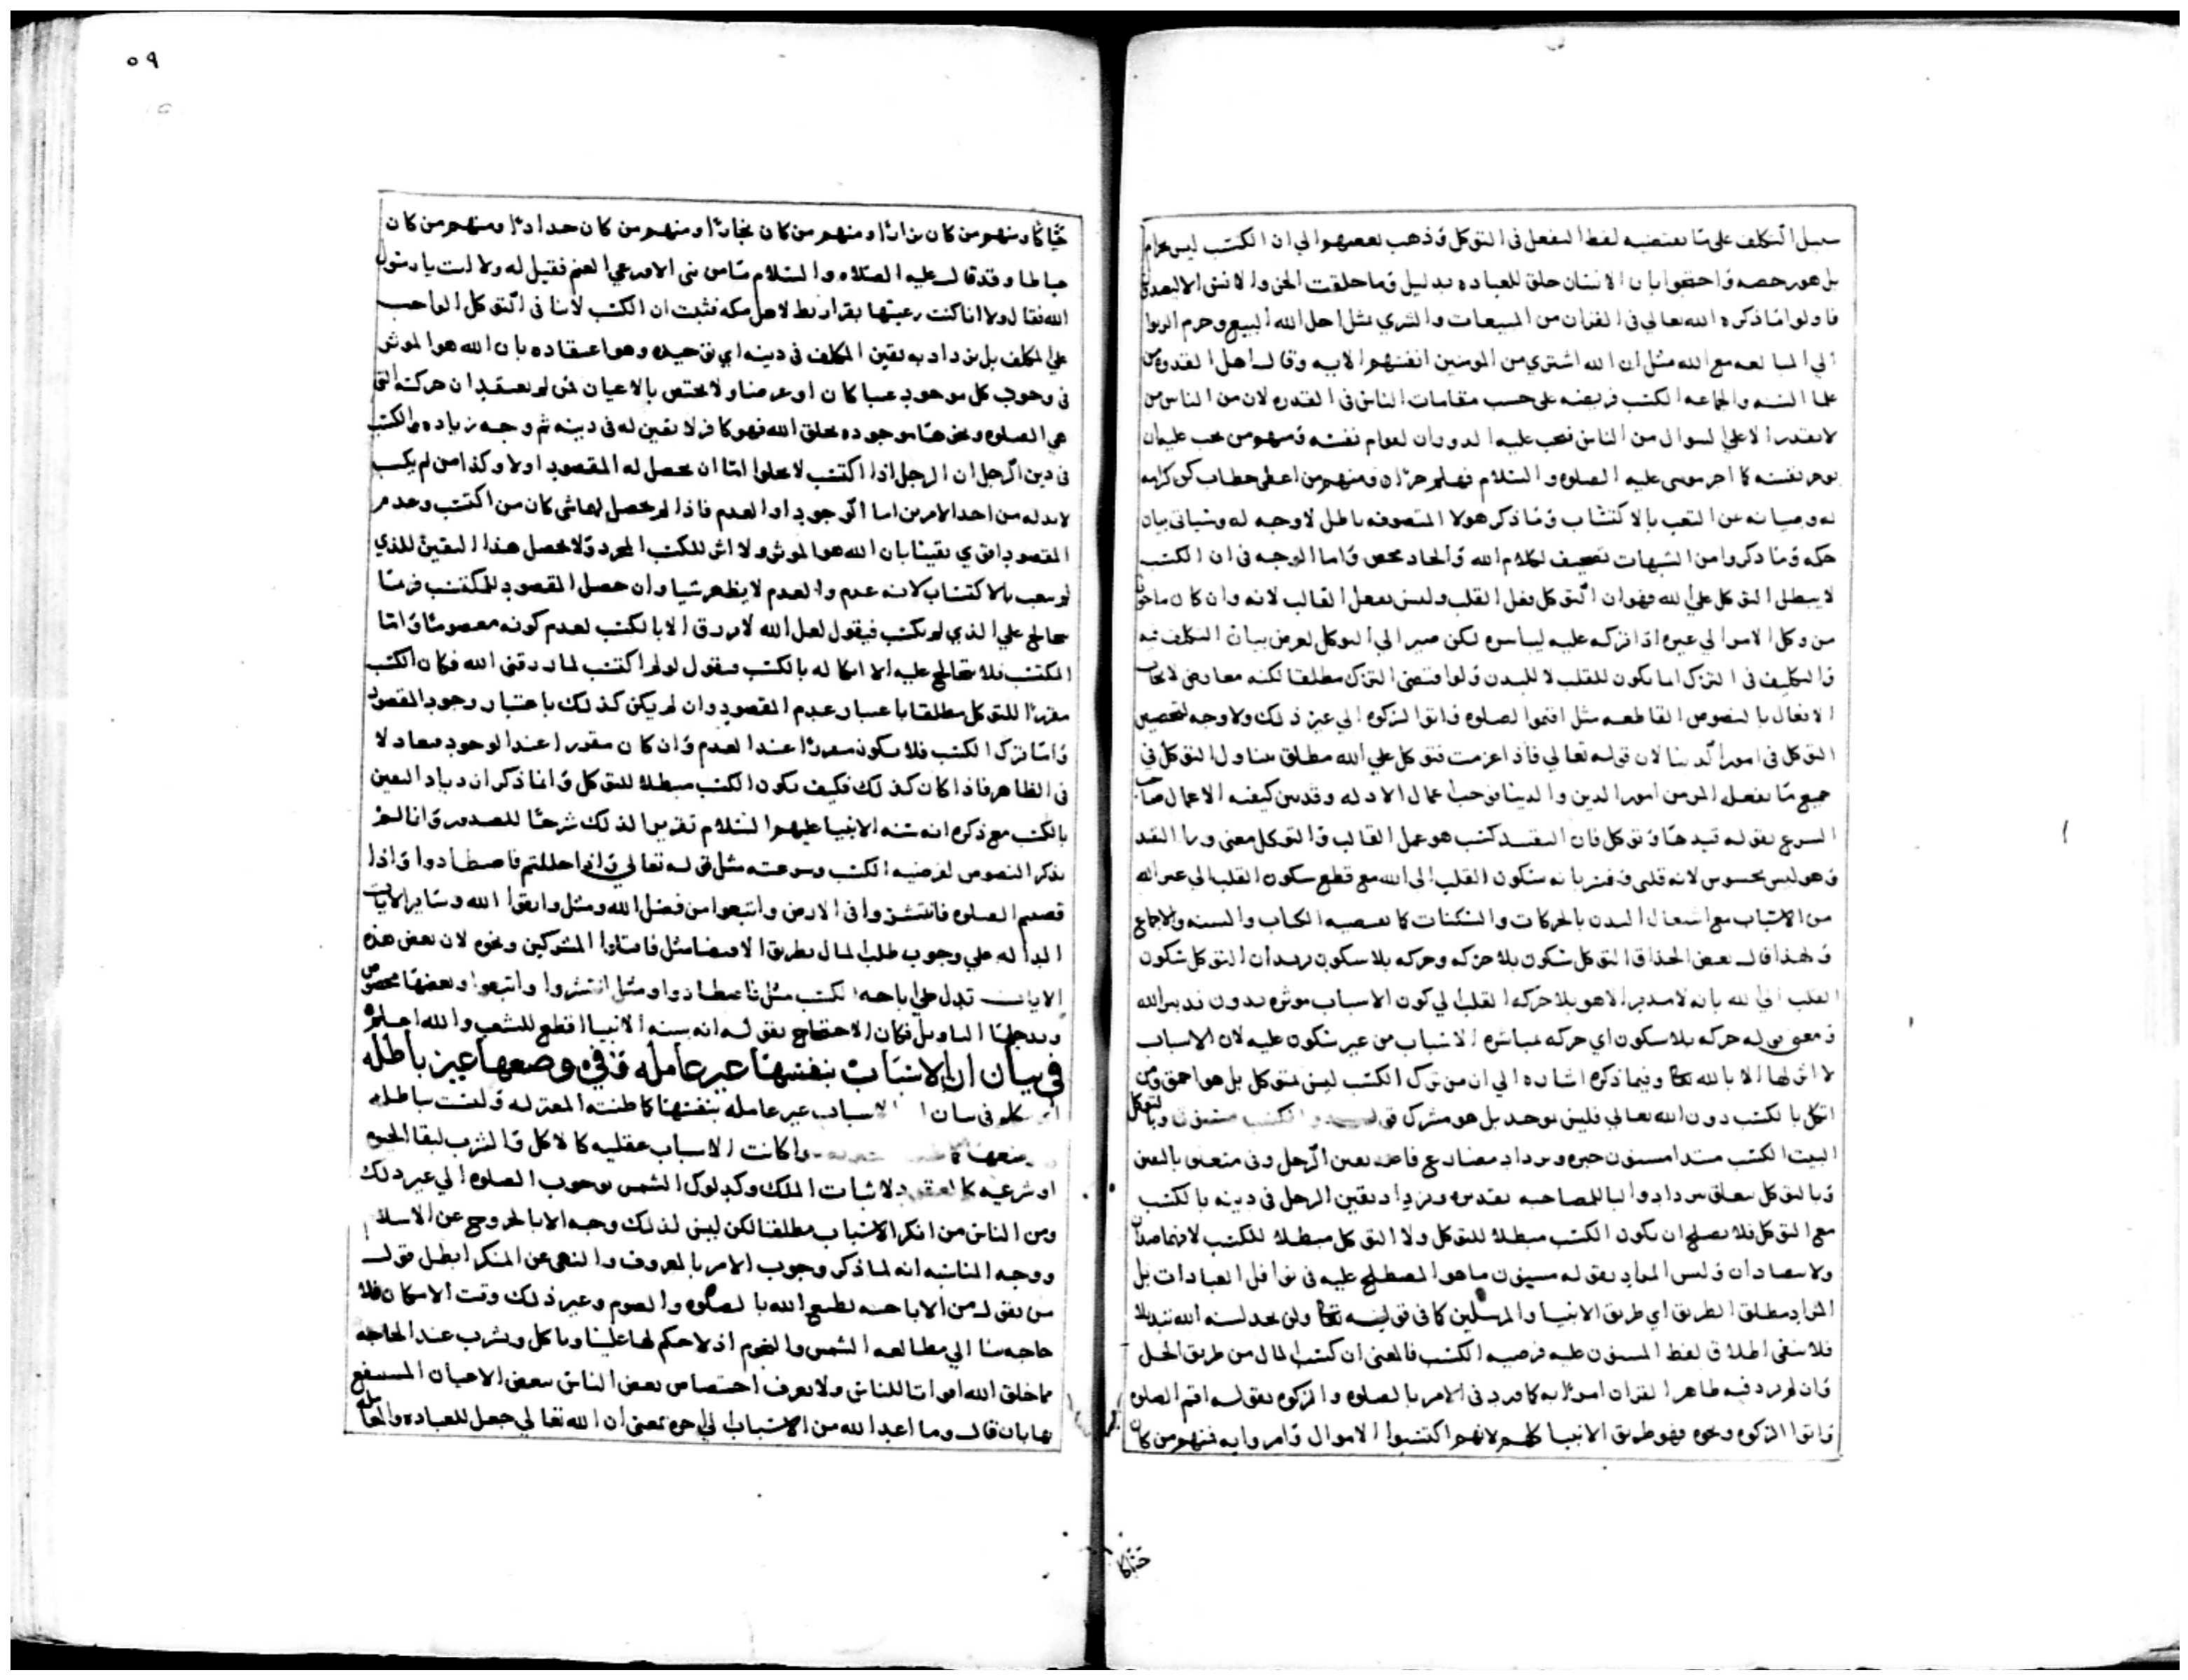 سبيل التكلف على ما يقتضيه لفظ التفعل في التوكل وذهب بعضهم الي ان الكسب ليس بحرام
بل هو رخصه واحتجوا بان الانسان خلق للعباده بدليل وما خلقت الجن والانس الا ليعبدون
فاولوا ما ذكره الله تعالي في القران من المبيعات والشري مثل احل الله البيع وحرم الربوا
الي المبايعه مع الله مثل ان الله اشتري من المومنين انفسهم الايه وقال اهل القدوه من
علما السنه والجماعه الكسب فريضه على حسب مقامات الناس في القدره لان من الناس من
لا يقدر الا علي السوال من الناس فيجب عليه الدوران لقوام نفسه ومنهم من يجب عليه ان
يوجر نفسه كما اجر موسى عليه الصلوه والسلام فهلم جرا ومنهم من اعطي خطاب كن كرامه
له وصيانه عن التعب بالاكتساب وما ذكر هولا المتصوفه باطل لا وجه له وسياتي بيان
حكه وما ذكروا من الشبهات تصحيف لكلام الله والحاد محض واما الوجه في ان الكسب
لا يبطل التوكل علي الله فهو ان التوكل فعل القلب وليس بفعل القالب لانه وان كان ماخوذا
من وكل الامر الي غيره اذا تركه عليه لياسره لكن صير الي التوكل لغرض بيان التكلف فيه
والتكليف في الترك انما يكون للقلب لا للبدن ولو اقتضى الترك مطلقا لكنه معارض لايجاب
الافعال بالنصوص القاطعه مثل اقيموا الصلوه واتوا الزكوه الي غير ذلك ولا وجه لتخصيص
التوكل في امور الدنيا لان قوله تعالي فاذا عزمت فتوكل علي الله مطلق يتناول التوكل في
جميع ما يفعله المومن امور الدين والدنيا فوجب اعمال الادله وقد بين كيفيه الاعمال صاحب
الشرع بقوله قيدها وتوكل فان التقييد كسب هو عمل القالب والتوكل معنى ورا القيد
وهو ليس بمحسوس لانه قلبي وفسر بانه سكون القلب الى الله مع قطع سكون القلب الي غير الله
من الاسباب مع اشتغال البدن بالحركات والسكنات كما يقتضيه الكتاب والسنه والاجماع
ولهذا قال بعض الحذاق التوكل سكون بلا حركه وحركه بلا سكون يريد ان التوكل سكون
القلب الي الله بانه لا مدبر الا هو بلا حركه القلب الي كون الاسباب موثره بدون تدبير الله
ومعنى قوله حركه بلا سكون اي حركه بمباشره الاسباب من غير سكون عليه لان الاسباب
لا اثر لها الا بالله تعا وفيما ذكره اشاره الي ان من ترك الكسب ليس بمتوكل بل هو احمق ومن
اتكل بالكسب دون الله تعالي فليس بموحد بل هو مشرك قوله والكسب مسنون وبالتوكل
البيت الكسب مبتدا مسنون خبره ويزداد مضارع فاعله يقين الرجل وفي متعلق باليقين
وبالتوكل يتعلق بيزداد والبا للمصاحبه تقديره ويزداد يقين الرجل في دينه بالكسب
مع التوكل فلا يصلح ان يكون الكسب مبطلا للتوكل ولا التوكل مبطلا للكسب لانهما
ولا يتضادان وليس المراد بقوله مسنون ما هو المصطلح عليه في نوافل العبادات بل
المراد مطلق الطريق اي طريق الانبيا والمرسلين كما في قوله تعا ولن تجد لسنه الله تبديلا
فلا ينفى اطلاق لفظ المسنون عليه فرضيه الكسب فالمعنى ان كسب المال من طريق الحل
وان لم يرد فيه ظاهر القران امرا به كما ورد في الامر بالصلوه والزكوه بقوله اقم الصلوه
واتوا الزكوه ونحوه فهو طريق الانبيا كلهم لانهم اكتسبوا الاموال وامروا به فمنهم من كان
حياكا
٥٩
حياكا ومنهم من كان بزازا ومنهم من كان نجارا ومنهم من كان حدادا ومنهم من كان
خياطا وقد قال عليه الصلاه والسلام ما من نبي الا ورعي الغنم فقيل له ولا انت يا رسول
الله فقال ولا انا كنت رعيتها بقراريط لاهل مكه فثبت ان الكسب لا ينافي التوكل الواجب
علي المكلف بل يزداد به يقين المكلف في دينه اي توحيده وهو اعتقاده بان الله هو الموثر
في وجود كل موجود عينا كان او عرضا ولا يختص بالاعيان لمن لم يعتقد ان حركته التي
هي الصلوه ونحوها موجوده بخلق الله فهو كافر لا يقين له في دينه ثم وجه زياده الكسب
في دين الرجل ان الرجل اذا اكتسب لا يخلوا اما ان يحصل له المقصود اولا وكذا من لم يكسب
لا بد له من احد الامرين اما الوجود او العدم فاذا لم يحصل لهما شي كان من اكتسب وعدم
المقصود اقوي يقينا بان الله هو الموثر ولا اثر للكسب المجرد ولا يحصل هذا اليقين للذي
لم يتعب بالاكتساب لانه عدم والعدم لا يظهر شيا وان حصل المقصود للمكتسب فربما
يعالج علي الذي لم يكتسب فيقول لعل الله لا يرزق الا بالكسب لعدم كونه معصوما واما
المكتسب فلا يتعالج عليه الا اتكاله بالكسب فيقول لو لم اكتسب لما رزقني الله فكان الكسب
مقررا للتوكل مطلقا باعتبار عدم المقصود وان لم يكن كذلك باعتبار وجود المقصود
واما ترك الكسب فلا يكون مقررا عند العدم وان كان مقررا عند الوجود فتعادلا
في الظاهر فاذا كان كذلك فكيف يكون الكسب مبطلا للتوكل وانما ذكر ازدياد اليقين
بالكسب مع ذكره انه سنه الانبيا عليهم السلام تقريرا لذلك شرحا للصدور وانما لم
يذكر النصوص لفرضيه الكسب وسرعته مثل قوله تعالي واذا حللتم فاصطادوا واذا
قضيتم الصلوه فانتشروا في الارض وابتغوا من فضل الله ومثل واتقوا الله وساير الايات
الداله علي وجوب طلب المال بطريق الاقتضا مثل فاقتلوا المشركين ونحوه لان بعض هذه
الايات تدل علي اباحه الكسب مثل فاصطادوا ومثل انتشروا وابتغوا وبعضها مخصوص
ويدخلها التاويل فكان الاحتجاج بقوله انه سنه الانبيا اقطع للشغب والله اعلم
في بيان ان الاسباب بنفسها غير عامله وفي وضعها غير باطله
في بيان الاسباب غير عامله بنفسها كما ظنته المعتزله وليست بباطله
وضعها كما سوا كانت الاسباب عقليه كالاكل والشرب لبقا الحيوه
او شرعيه كالعقود لاثبات الملك وكدلوك الشمس لوجوب الصلوه الي غير ذلك
ومن الناس من انكر الاسباب مطلقا لكن ليس لذلك وجه الا بالخروج عن الاسلام
ووجه المناسبه انه لما ذكر وجوب الامر بالمعروف والنهي عن المنكر ابطل قول
من يقول من الاباحيه نطيع الله بالصلوه والصوم وغير ذلك وقت الامكان فلا
حاجه بنا الي مطالعه الشمس والنجوم اذ لا حكم لها علينا وناكل ونشرب عند الحاجه
مما خلق الله امواتا للناس ولا يعرف اختصاص بعض الناس ببعض الاعيان المنتفع
بها بان قال وما اعد الله من الاسباب الي اخره يعني ان الله تعالي جعل للعباده والمعامله